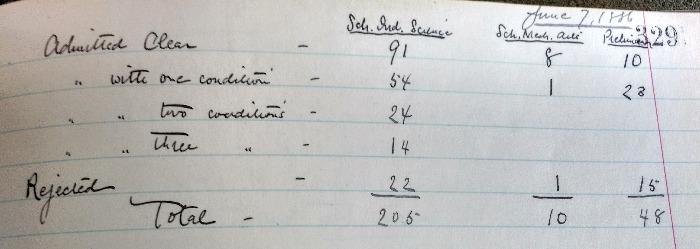 June 7, 1886 329
Sch. Ind. Science Sch. Mech. Arts Prelim
Admitted Clear - 91 8 10
" with one condition - 54 1 23
" " two conditions - 24
" " three " - 14
Rejected - 22 1 15
Total - 205 10 48